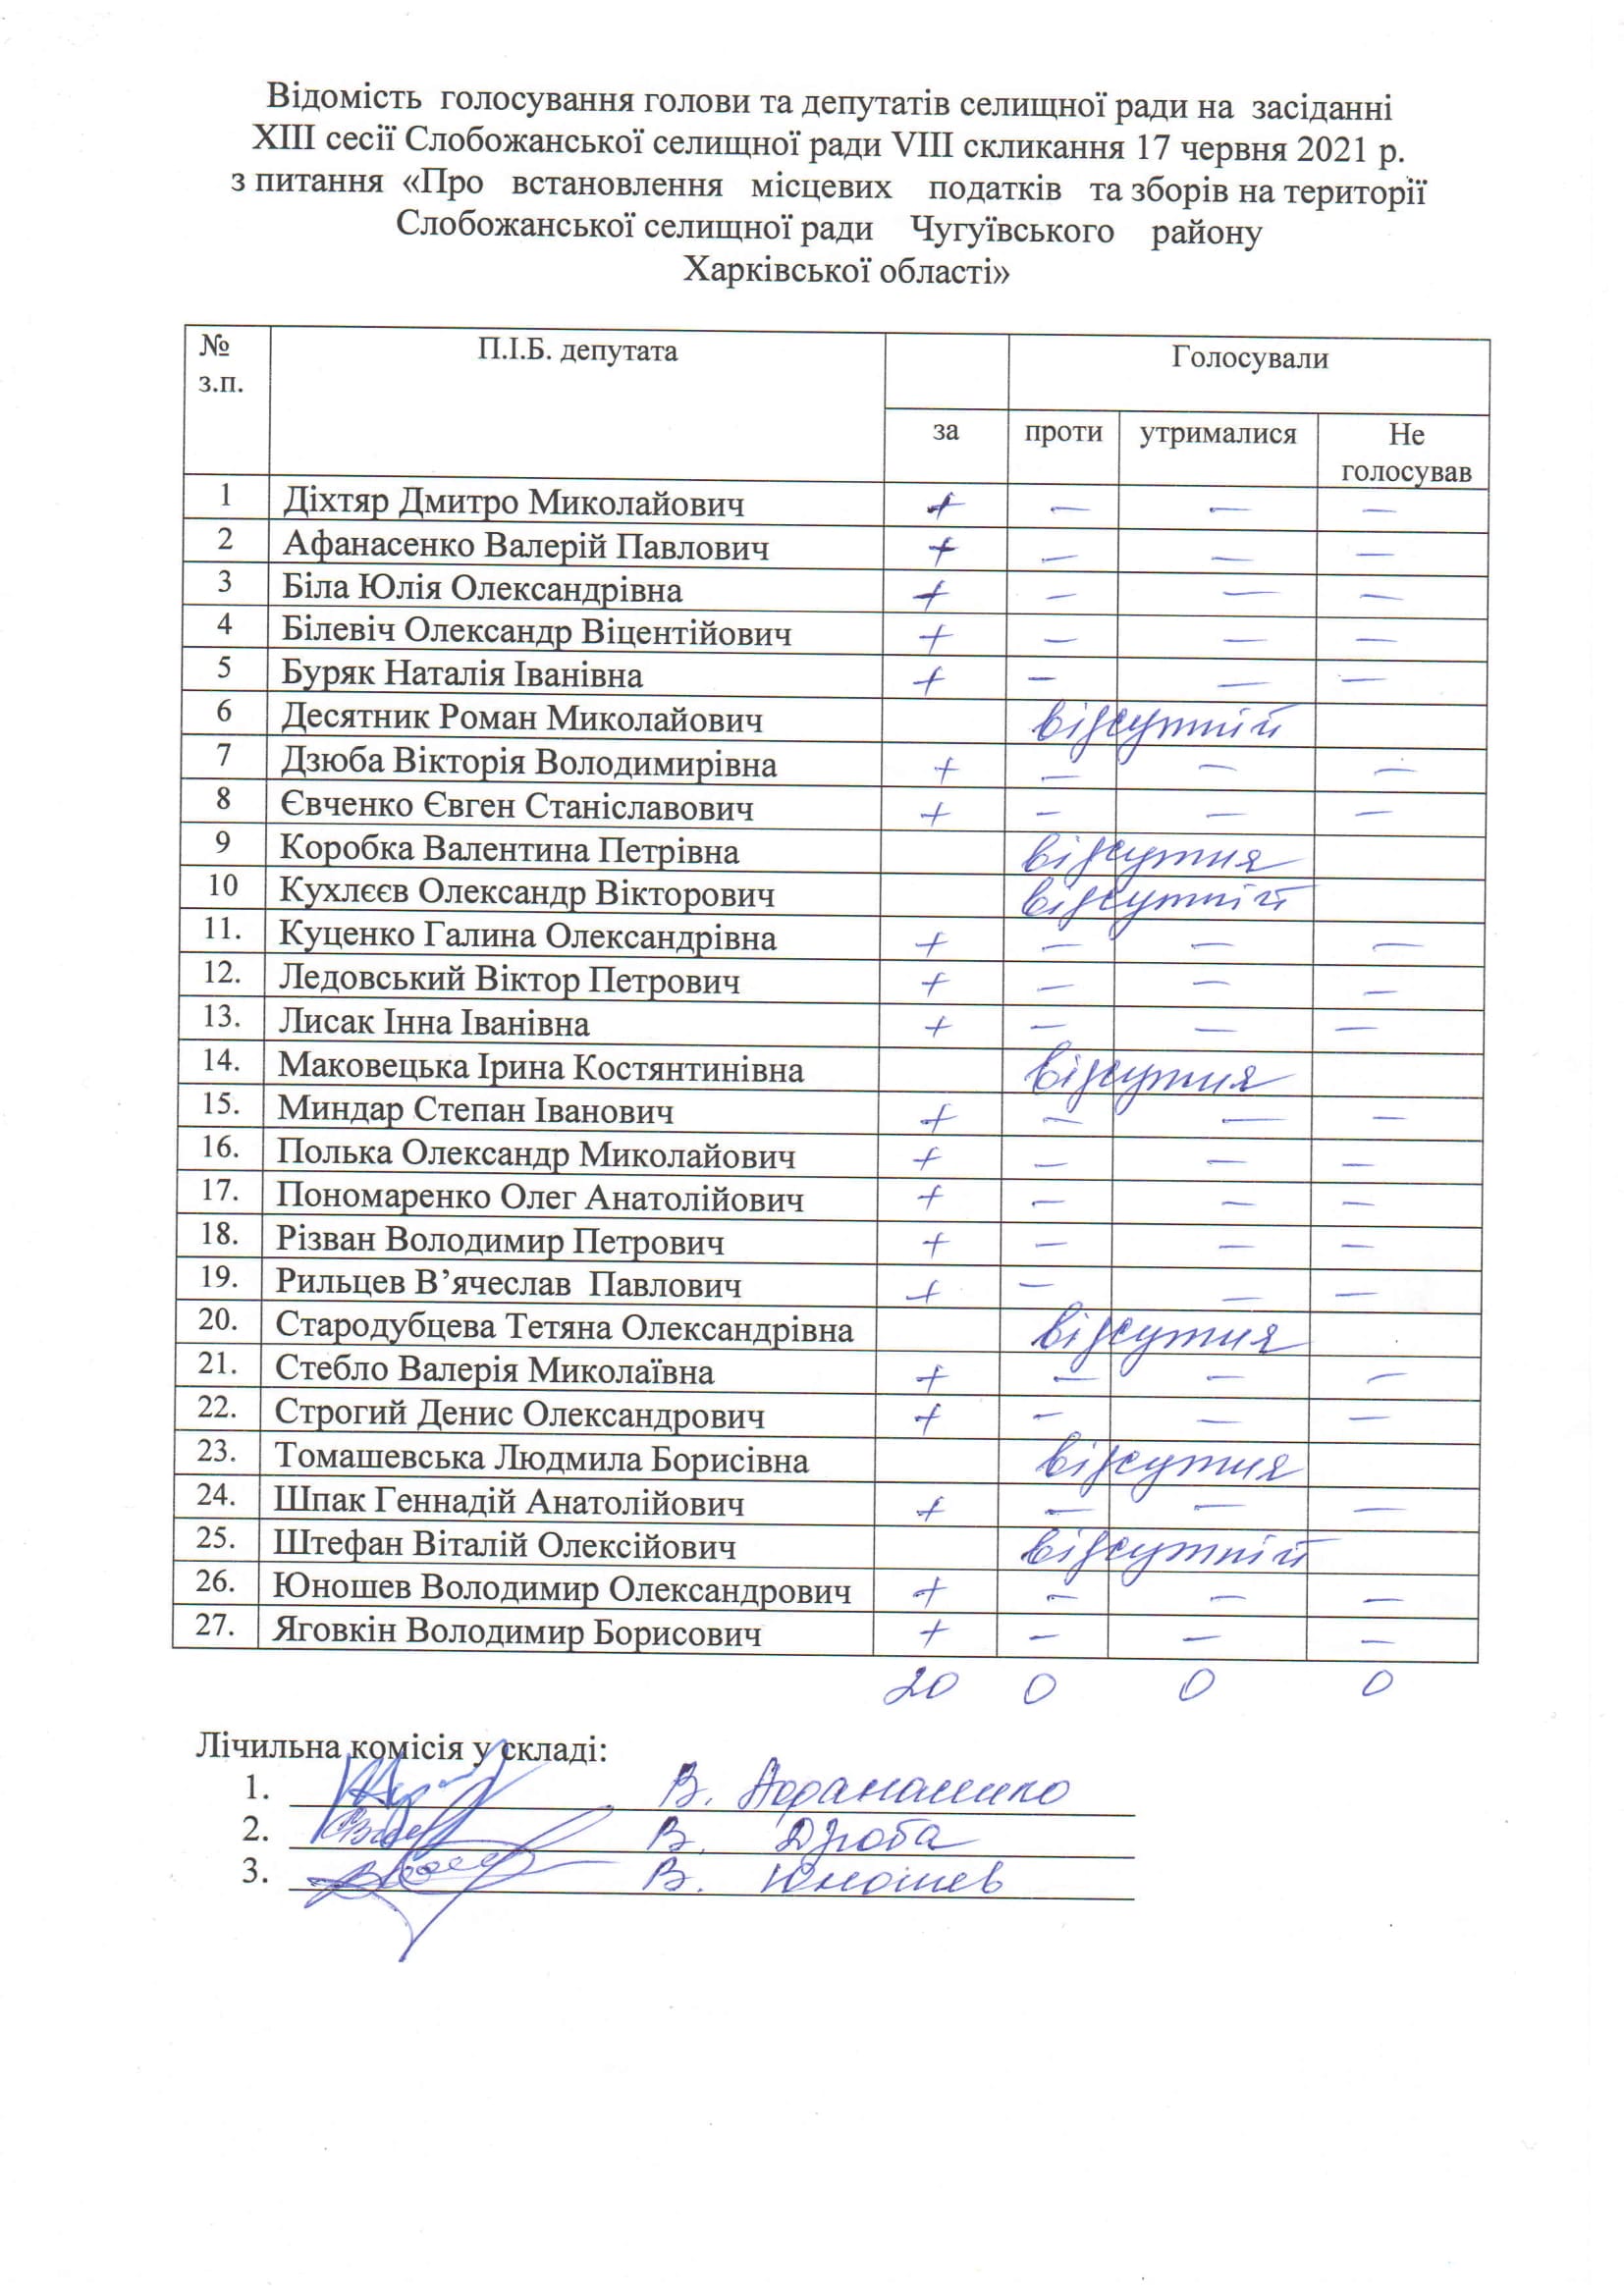 Відомість голосування голови та депутатів селищної ради на засіданні
ХІІІ сесії Слобожанської селищної ради VIII скликання 17 червня 2021 р.
з питання «Про встановлення місцевих податків та зборів на території
Слобожанської селищної ради Чугуївського району
Харківської області»
№ з.п. П.І.Б. депутата Голосували
за проти утрималися Не голосував
1 Діхтяр Дмитро Миколайович + – – –
2 Афанасенко Валерій Павлович + – – –
3 Біла Юлія Олександрівна + – – –
4 Білевіч Олександр Віцентійович + – – –
5 Буряк Наталія Іванівна + – – –
6 Десятник Роман Миколайович відсутній
7 Дзюба Вікторія Володимирівна + – – –
8 Євченко Євген Станіславович + – – –
9 Коробка Валентина Петрівна відсутня
10 Кухлєєв Олександр Вікторович відсутній
11. Куценко Галина Олександрівна + – – –
12. Ледовський Віктор Петрович + – – –
13. Лисак Інна Іванівна + – – –
14. Маковецька Ірина Костянтинівна відсутня
15. Миндар Степан Іванович + – – –
16. Полька Олександр Миколайович + – – –
17. Пономаренко Олег Анатолійович + – – –
18. Різван Володимир Петрович + – – –
19. Рильцев В’ячеслав Павлович + – – –
20. Стародубцева Тетяна Олександрівна відсутня
21. Стебло Валерія Миколаївна + – – –
22. Строгий Денис Олександрович + – – –
23. Томашевська Людмила Борисівна відсутня
24. Шпак Геннадій Анатолійович + – – –
25. Штефан Віталій Олексійович відсутній
26. Юношев Володимир Олександрович + – – –
27. Яговкін Володимир Борисович + – – –
20 0 0 0
Лічильна комісія у складі:
1. В. Афанасенко
2. В. Дзюба
3. В. Юношев